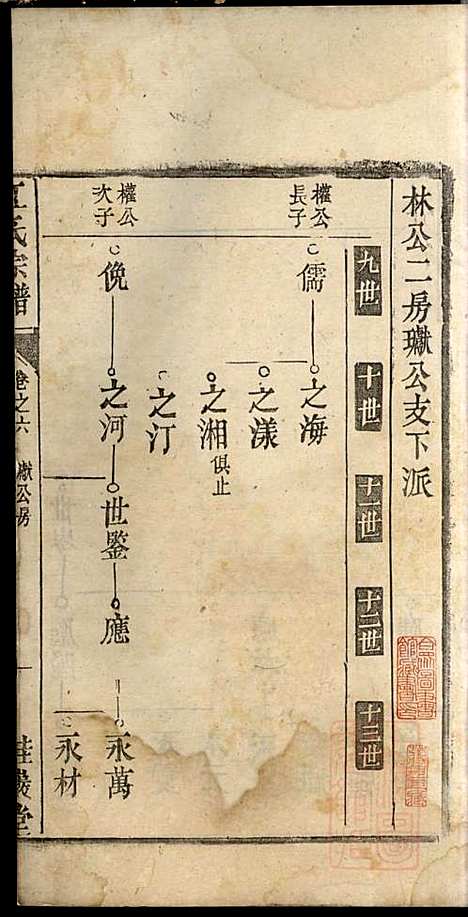 林公二房瓛公支下派
九世
十世
十一世
十二世
十三世
權公長子
儒
之海
之漾
之湘 俱止
之汀
權公次子
俛
之河
世鑒
應
永萬
永材
氏宗譜
卷之六
獻公房
一
桂巖堂